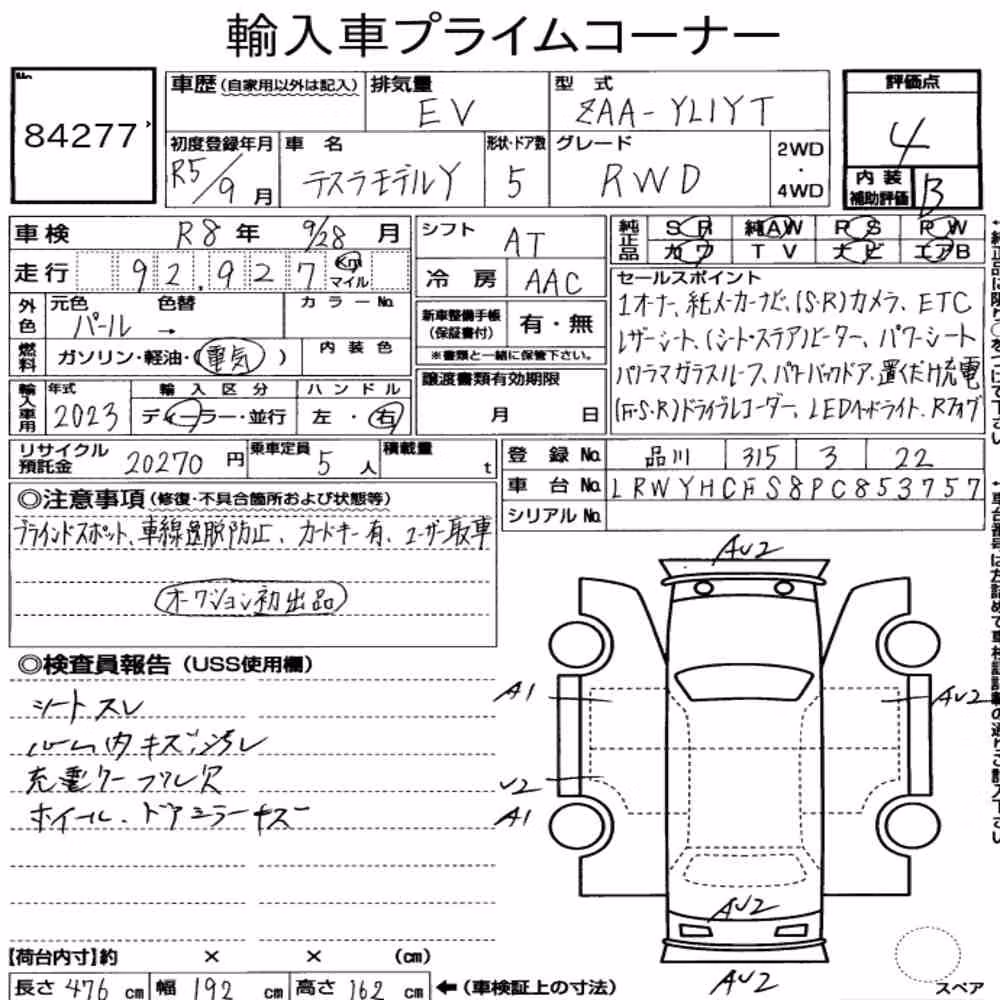 輸入車プライムコーナー
No.
84277
車歴 (自家用以外は記入)
排気量
EV
型式
ZAA-YL1YT
評価点
4
初度登録年月
R5/9月
車名
テスラモデルY
形状・ドア数
5
グレード
RWD
2WD
・
4WD
内装
補助評価
B
車検 R8年 9/28月
走行 92,927 Km マイル
シフト
AT
冷房
AAC
純正品
SR 純AW PS PW
カワ TV ナビ エアB
セールスポイント
1オーナ、純メーカーナビ、(S・R)カメラ、ETC
レザーシート、(シート・ステア)ヒーター、パワーシート
パノラマガラスルーフ、パワーバックドア、置くだけ充電
(F・S・R)ドライブレコーダー、LEDヘッドライト、Rフォグ
外色
元色 色替
パール →
カラーNo.
燃料
ガソリン・軽油・(電気)
内装色
新車整備手帳
(保証書付)
有・無
※書類と一緒に保管下さい。
輸入車用
年式
2023
輸入区分
ディーラー・並行
ハンドル
左・右
譲渡書類有効期限
月 日
リサイクル
預託金 20270円
乗車定員
5人
積載量
t
登録No. 品川 315 3 22
車台No. LRWYHCFS8PC853757
シリアルNo.
◎注意事項(修復・不具合箇所および状態等)
ブラインドスポット、車線逸脱防止、カードキー有、ユーザー取車
オークション初出品
◎検査員報告(USS使用欄)
シートスレ
ルーム内キズ、汚レ
充電ケーブル欠
ホイール、ドアミラーキズ
AU2
A1
AU2
U2
A1
AU2
AU2
スペア
【荷台内寸】約 × × (cm)
長さ 476 cm 幅 192 cm 高さ 162 cm ←(車検証上の寸法)